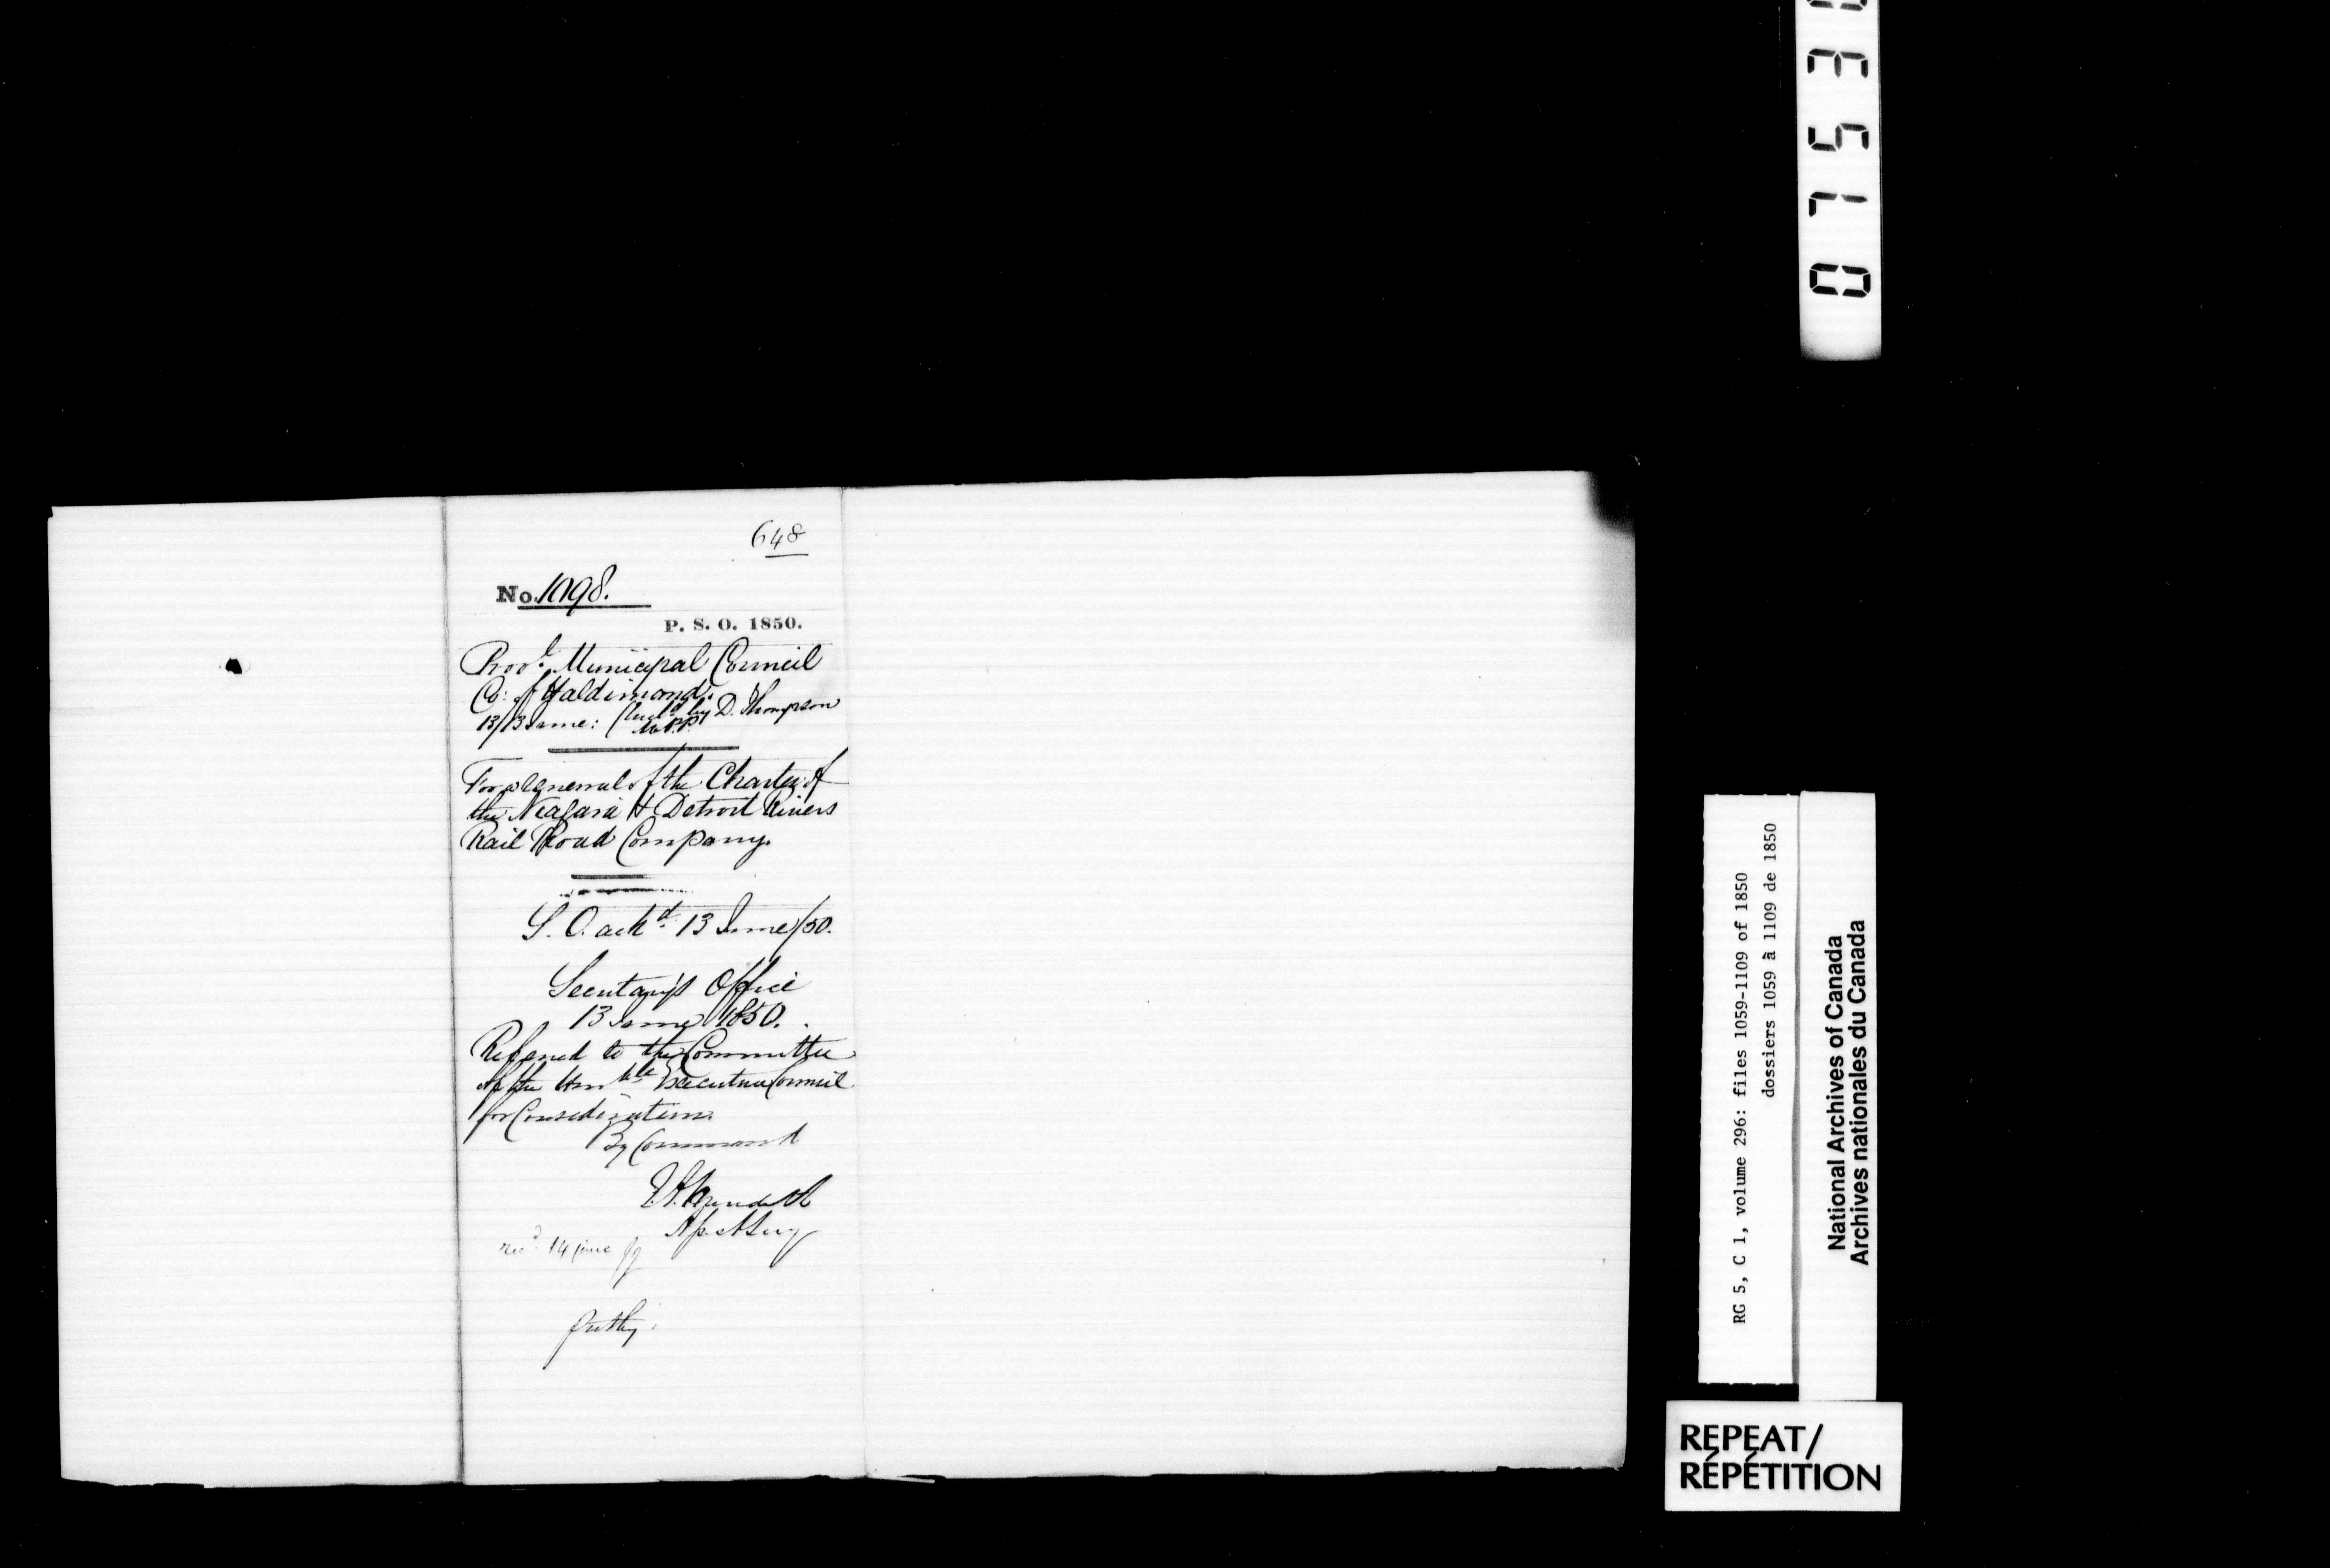 648
No. 1098.
P. S. O. 1850.
Provl. Municipal Council
Co: of Haldimand.
13/13 June: (Encld by D. Thompson
M.P.P.
For renewal of the Charter of
the Niagara & Detroit Rivers
Rail Road Company.
S. O. ackd. 13 June/50.
Secretary's Office
13 June 1850.
Referred to the Committee
of the Honble Executive Council
for Consideration.
By Command
E. A. Meredith
Asst Secy
recd 14 June
RG 5, C 1, volume 296: files 1059-1109 of 1850
dossiers 1059 à 1109 de 1850
National Archives of Canada
Archives nationales du Canada
REPEAT/
RÉPÉTITION